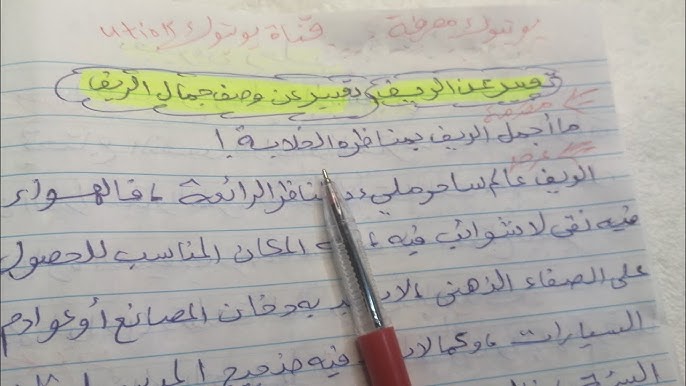 يوتيوك معرفة قناة يوتوك utiok
تعبير عن الريف تعبير عن وصف جمال الريف
مقدمة
ما أجمل الريف بمناظره الخلابة !
عرض
الريف عالم ساحر مليء المناظر الرائعة، فالهواء
فيه نقي لا شوائب فيه المكان المناسب للحصول
على الصفاء الذهني به دخان المصانع أو عوادم
السيارات، وكما لا فيه ضجيج